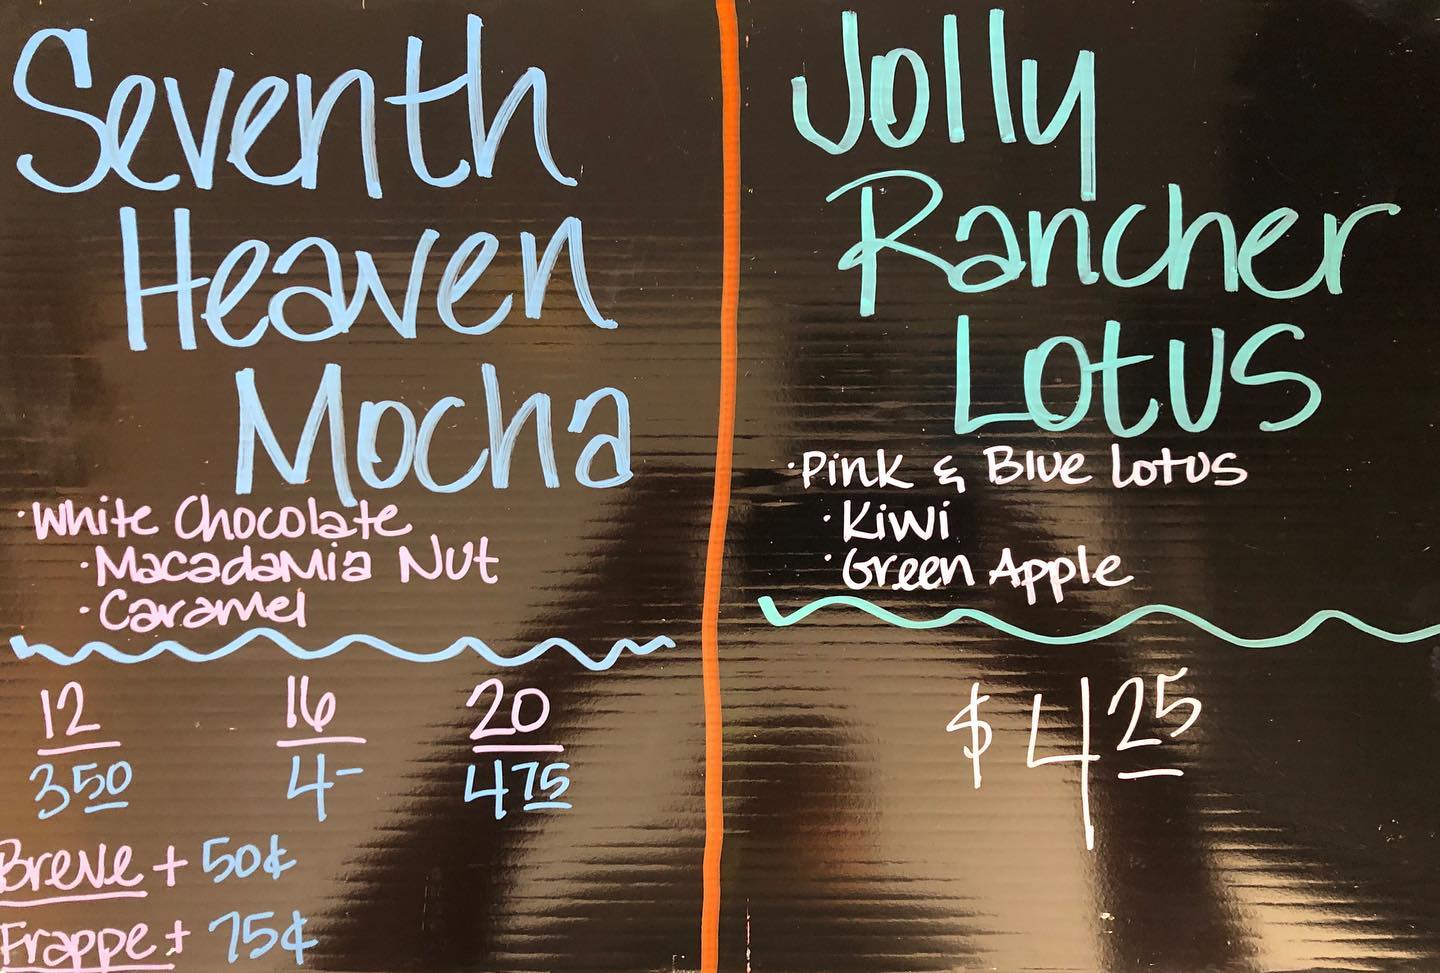 Seventh
Heaven
Mocha
·White Chocolate
·Macadamia Nut
·Caramel
12 16 20
3 50 4- 4 75
Breve + 50¢
Frappe + 75¢
Jolly
Rancher
Lotus
·Pink & Blue Lotus
·Kiwi
·Green Apple
$ 4 25